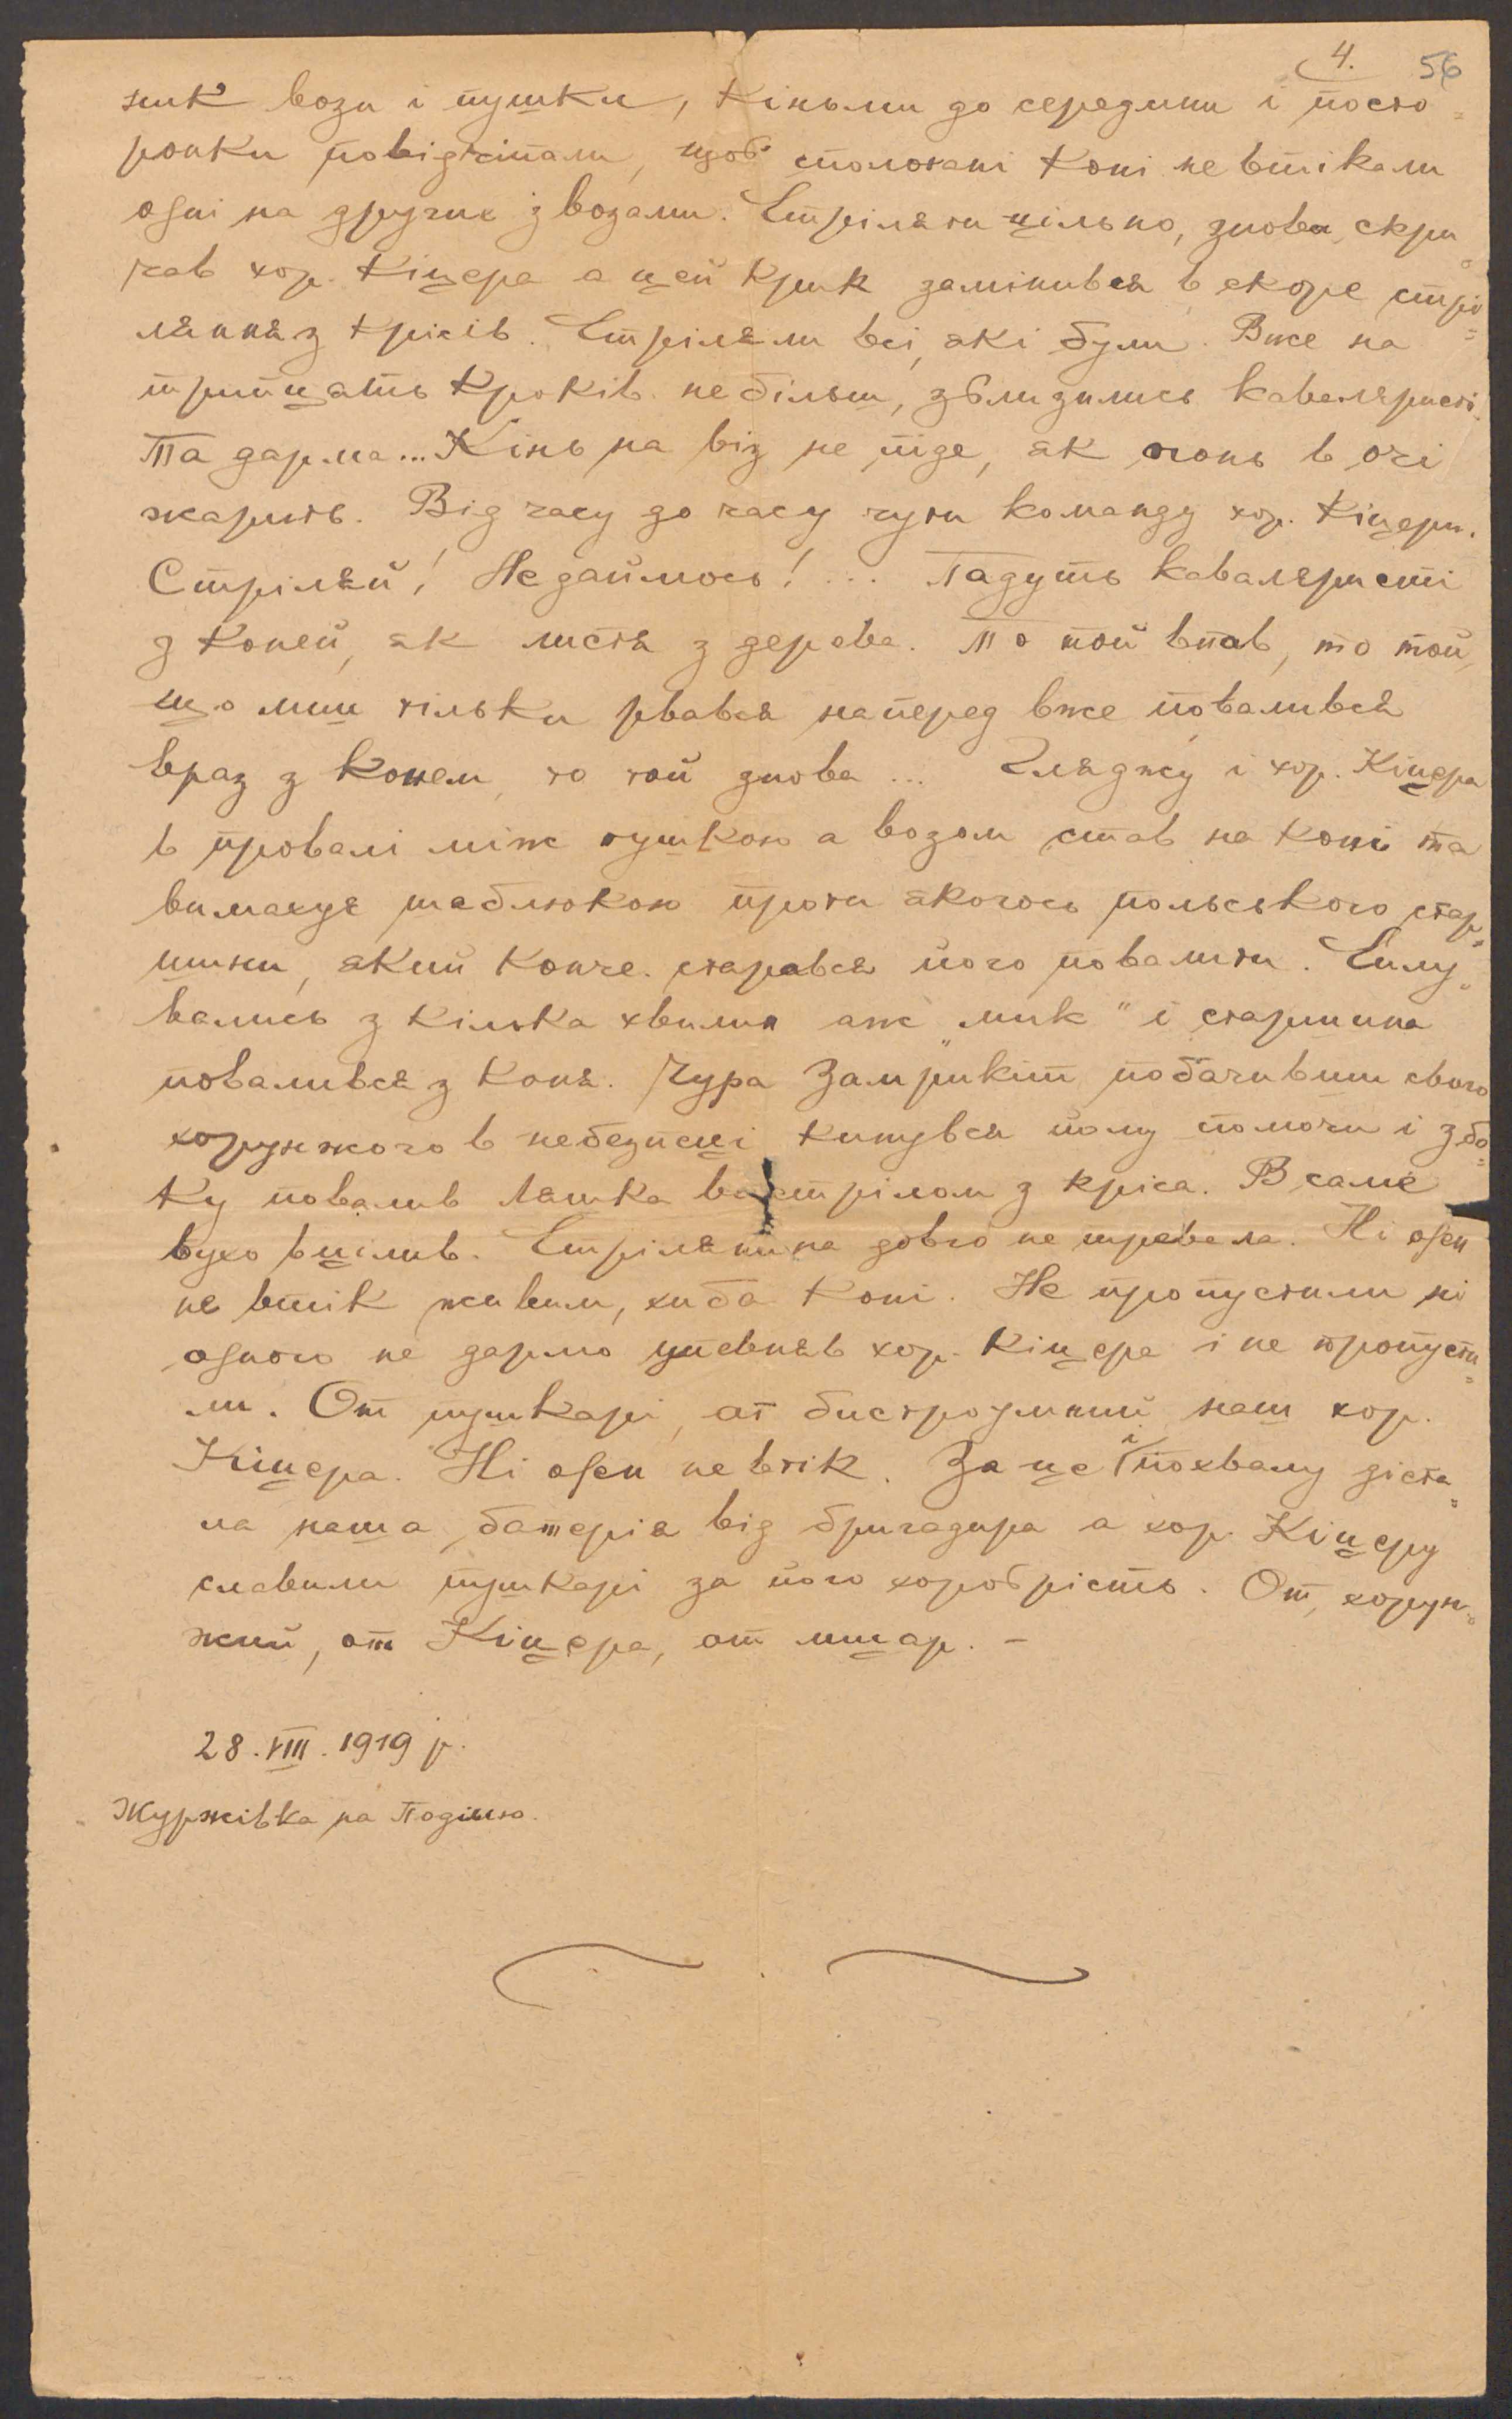 4. 56
зник вози і пушки, кіньми до середини і посто=
ронки повідчіпали, щоб сполохані коні не втікали
одні на других з возами. Стріляти цільно, знова скри=
чав хор. Кіцера а цей крик замінився в скоре стрі=
ляння з крісів. Стріляли всі, які були. Вже на
трийцять кроків не більш, зближились кавалєристі.
Та дарма... Кінь на віз не піде, як огонь в очі
жарить. Від часу до часу чути команду хор. Кіцери.
Стріляй! Не даймось!... Падуть кавалєристі
з коней, як листя з дерева. То той впав, то той,
що лиш тільки рвався наперед вже повалився
враз з конем, то той знова ... Гляджу і хор. Кіцера
в провалі між пушкою а возом став на коні та
вимахує шаблюкою проти якогось польського стар=
шини, який конче старався його повалити. Силу=
вались з кілька хвилин аж „мик" і старшина
повалився з коня. Чура Замрикіт побачивши свого
хорунжого в небезпеці кинувся йому помочи і збо=
ку повалив Ляшка вистрілом з кріса. В саме
вухо вцілив. Стрілянина довго не тревала. Ні оден
не втік живим, хиба коні. Не пропустили ні
одного не дармо упевняв хор. Кіцера і не пропусти=
ли. От пушкарі, от бистроумний наш хор.
Кіцера. Ні оден не втік. За це і похвалу діста=
ла наша батерія від бригадира а хор. Кіцеру
славили пушкарі за його хоробрість. От, хорун=
жий, от Кіцера, от лицар. –
28. VIII. 1919 р.
Журжівка на Поділлю.